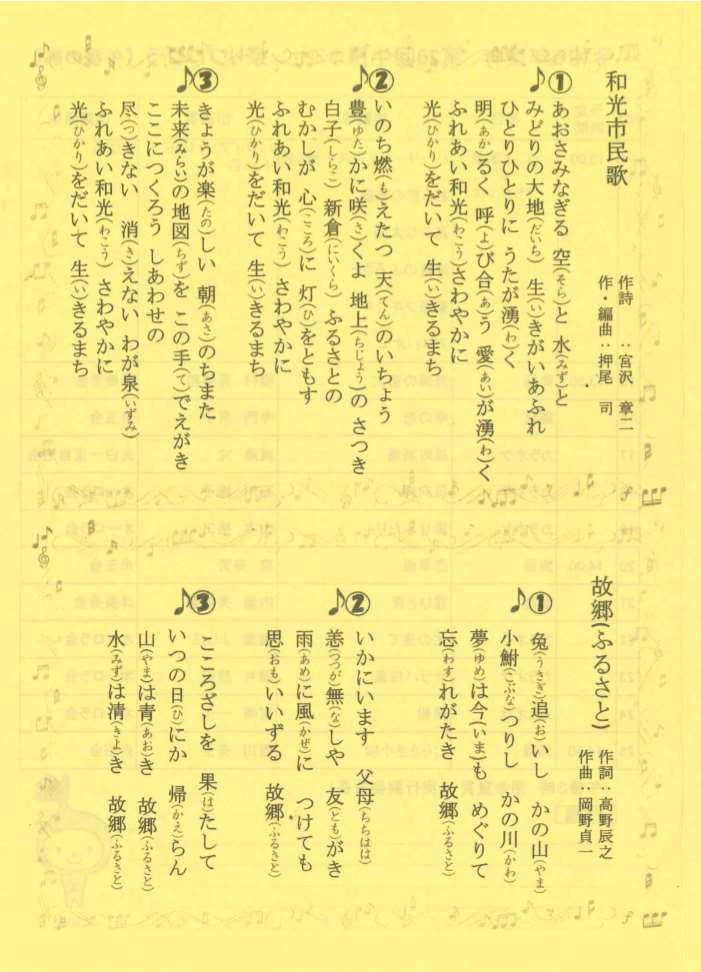 和光市民歌
作詩　：宮沢　章二
作・編曲：押尾　司
♪①
あおさみなぎる　空(そら)と　水(みず)と
みどりの大地(だいち)　生(い)きがいあふれ
ひとりひとりに　うたが湧(わ)く
明(あか)るく　呼(よ)び合(あ)う　愛(あい)が湧(わ)く
ふれあい和光(わこう)さわやかに
光(ひかり)をだいて　生(い)きるまち
♪②
いのち燃(も)えたつ　天(てん)のいちょう
豊(ゆた)かに咲(さ)くよ　地上(ちじょう)の　さつき
白子(しらこ)　新倉(にいくら)　ふるさとの
むかしが　心(こころ)に　灯(ひ)をともす
ふれあい和光(わこう)　さわやかに
光(ひかり)をだいて　生(い)きるまち
♪③
きょうが楽(たの)しい　朝(あさ)のちまた
未来(みらい)の地図(ちず)を　この手(て)でえがき
ここにつくろう　しあわせの
尽(つ)きない　消(き)えない　わが泉(いずみ)
ふれあい和光(わこう)　さわやかに
光(ひかり)をだいて　生(い)きるまち
故郷(ふるさと)
作詞：高野辰之
作曲：岡野貞一
♪①
兔(うさぎ)追(お)いし　かの山(やま)
小鮒(こぶな)つりし　かの川(かわ)
夢(ゆめ)は今(いま)も　めぐりて
忘(わす)れがたき　故郷(ふるさと)
♪②
いかにいます　父母(ちちはは)
恙(つつが)無(な)しや　友(とも)がき
雨(あめ)に風(かぜ)に　つけても
思(おも)いいずる　故郷(ふるさと)
♪③
こころざしを　果(は)たして
いつの日(ひ)にか　帰(かえ)らん
山(やま)は青(あお)き　故郷(ふるさと)
水(みず)は清(きよ)き　故郷(ふるさと)